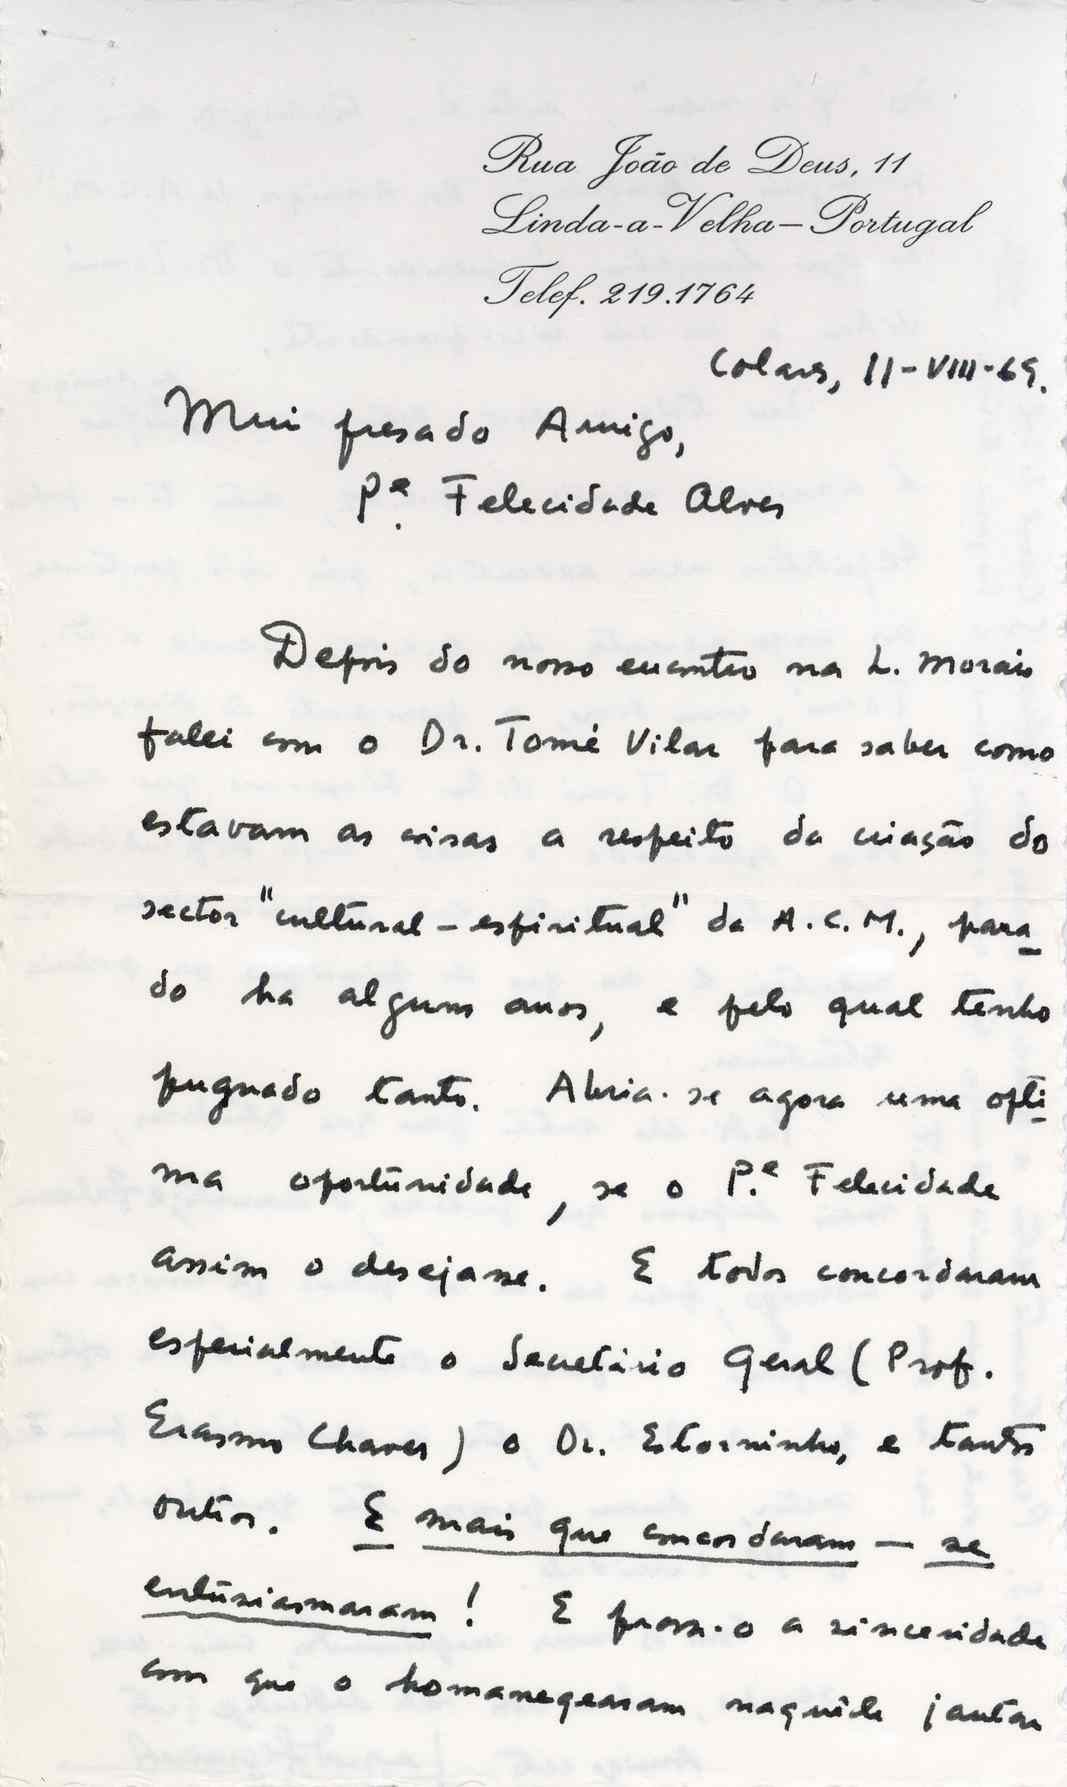 Rua João de Deus, 11
Linda-a-Velha – Portugal
Telef. 219.1764
Colares, 11-VIII-69.
Mui presado Amigo,
P.e Felecidade Alves
Depois do nosso encontro na L. Morais
falei com o Dr. Tomé Vilar para saber como
estavam as coisas a respeito da criação do
sector "cultural – espiritual" da A.C.M., para-
do ha alguns anos, e pelo qual tenho
pugnado tanto. Abria-se agora uma opti-
ma oportunidade, se o P.e Felecidade
assim o desejasse. E todos concordaram
especialmente o Secretário Geral (Prof.
Erasmo Chaves) o Dr. Estorninho, e tantos
outros. E mais que concordaram – se
entusiasmaram! E prova-o a sinceridade
com que o homanegearam naquele jantar